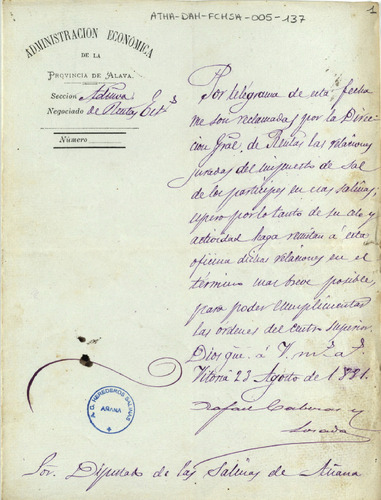 ATHA-DAH-FCHSA-005-137
1
ADMINISTRACION ECONÓMICA
DE LA
PROVINCIA DE ALAVA.
Seccion Admva
Negociado de Rentas Est.s
Número
Por telégrama de esta fecha
me son reclamadas por la Direc
cion Gral. de Rentas las relaciones
juradas del impuesto de sal
de los partícipes en esas salinas,
espero por lo tanto de su celo y
actividad haga remitan á esta
oficina dichas relaciones en el
término mas breve posible,
para poder cumplimentar
las ordenes del Centro Superior.
Dios gue. á V. m.s a.s
Vitoria 23 Agosto de 1881.
Rafael Cabezas y
Losada
A.C. HEREDEROS SALINAS
AÑANA
Sor. Diputado de las Salinas de Añana